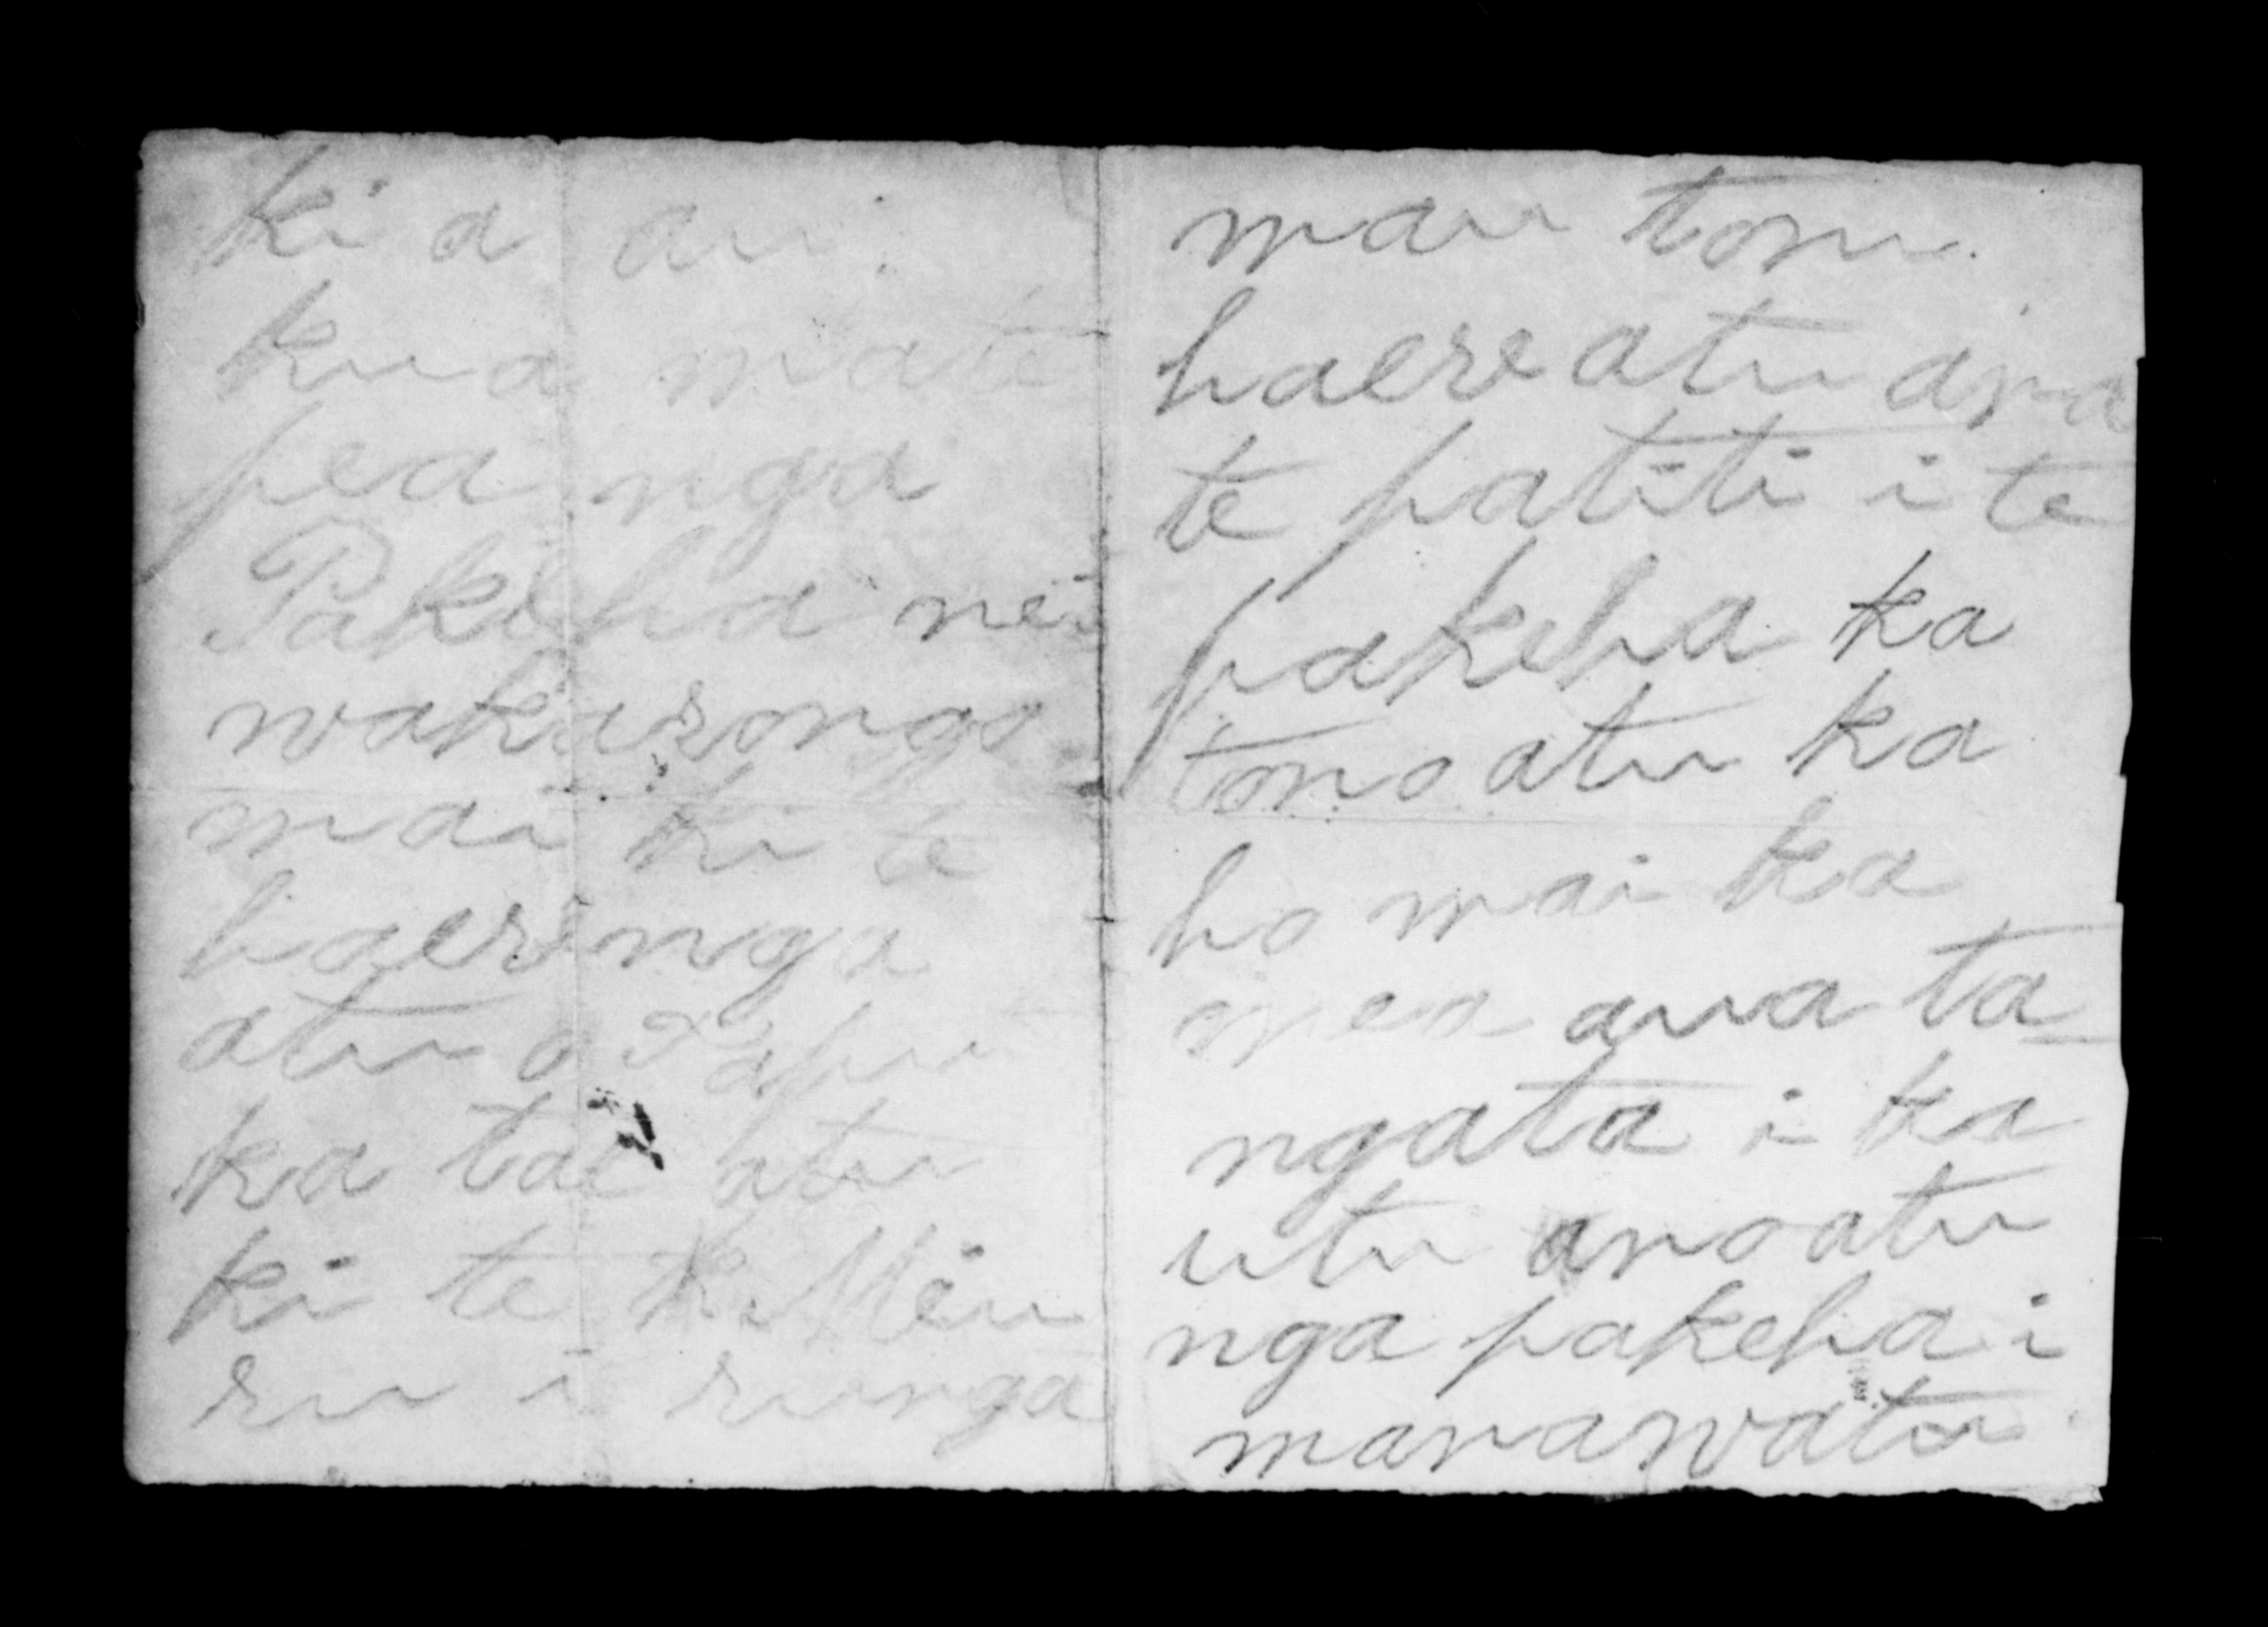 ki a au.
kua mate
pea nga
Pakeha nei
wakarongo
mai ki te
haerenga
atu o Tapu
ka tae atu
ki te K. Meu
ru i runga
mau tonu.
haere atu ana
te patiti i te
pakeha ka
tono atu ka
ho mai ka
mea aua ta-
ngata i ka
utu ano atu
nga pakeha i
manawatu